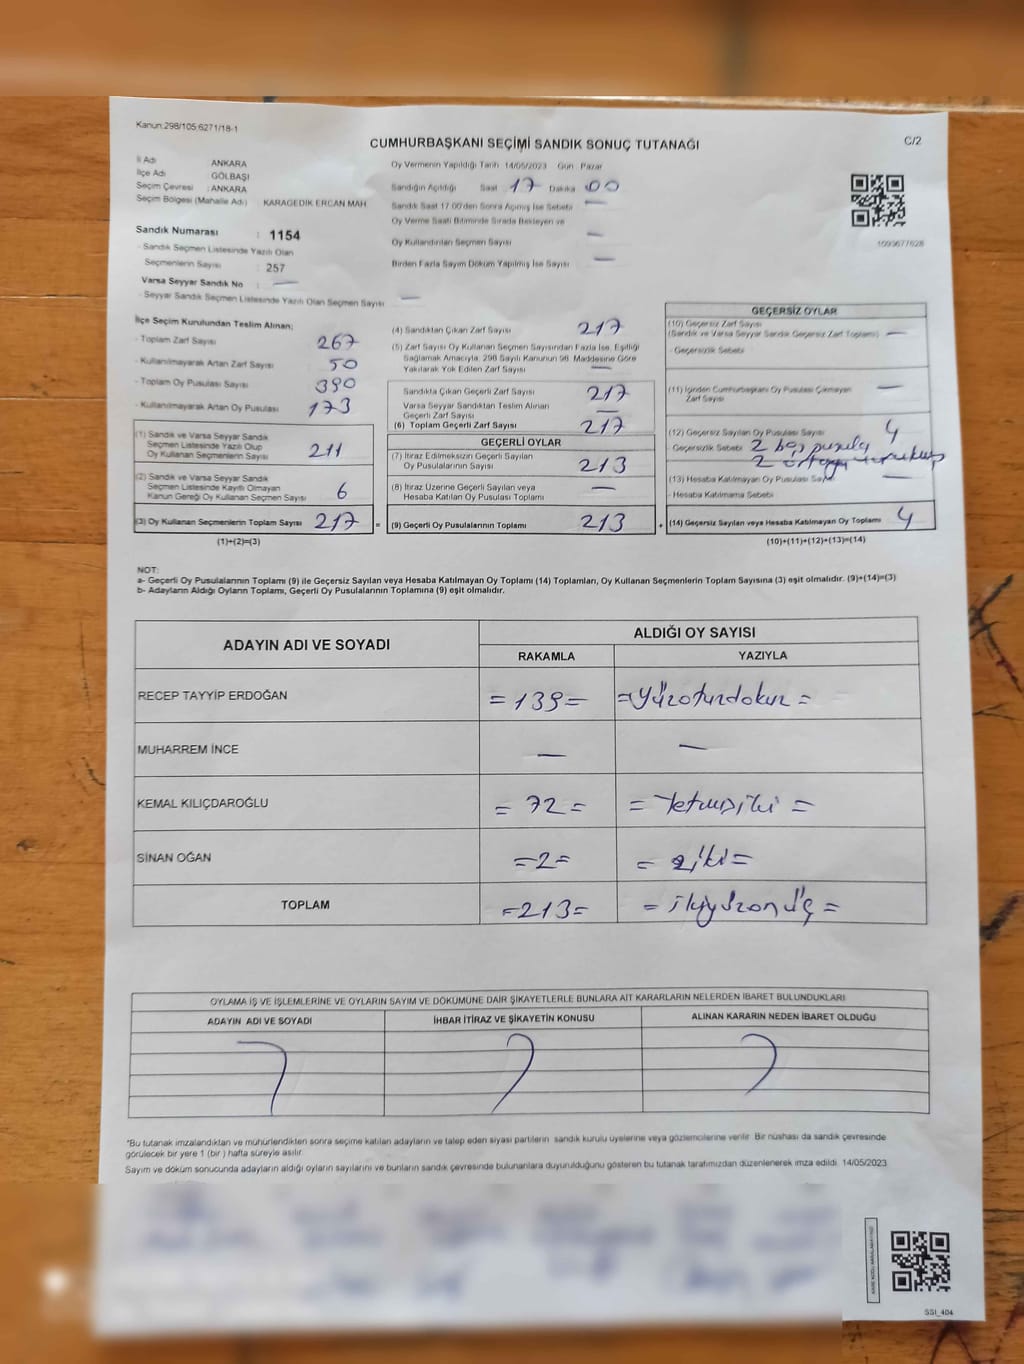 Kanun:298/105;6271/18-1
CUMHURBAŞKANI SEÇİMİ SANDIK SONUÇ TUTANAĞI
C/2
İl Adı ANKARA
İlçe Adı GÖLBAŞI
Seçim Çevresi : ANKARA
Seçim Bölgesi (Mahalle Adı) : KARAGEDİK ERCAN MAH
Oy Vermenin Yapıldığı Tarih 14/05/2023 Gün Pazar
Sandığın Açıldığı Saat : 17 Dakika : 00
Sandık Saat 17.00'den Sonra Açılmış İse Sebebi —
Oy Verme Saati Bitiminde Sırada Bekleyen ve
Oy Kullandırılan Seçmen Sayısı —
Birden Fazla Sayım Döküm Yapılmış İse Sayısı —
1099677628
Sandık Numarası : 1154
- Sandık Seçmen Listesinde Yazılı Olan
Seçmenlerin Sayısı : 257
Varsa Seyyar Sandık No : —
- Seyyar Sandık Seçmen Listesinde Yazılı Olan Seçmen Sayısı —
İlçe Seçim Kurulundan Teslim Alınan;
- Toplam Zarf Sayısı 267
- Kullanılmayarak Artan Zarf Sayısı 50
- Toplam Oy Pusulası Sayısı 390
- Kullanılmayarak Artan Oy Pusulası 173
(1) Sandık ve Varsa Seyyar Sandık
Seçmen Listesinde Yazılı Olup
Oy Kullanan Seçmenlerin Sayısı 211
(2) Sandık ve Varsa Seyyar Sandık
Seçmen Listesinde Kayıtlı Olmayan
Kanun Gereği Oy Kullanan Seçmen Sayısı 6
(3) Oy Kullanan Seçmenlerin Toplam Sayısı 217 =
(1)+(2)=(3)
(4) Sandıktan Çıkan Zarf Sayısı 217
(5) Zarf Sayısı Oy Kullanan Seçmen Sayısından Fazla İse, Eşitliği
Sağlamak Amacıyla, 298 Sayılı Kanunun 98. Maddesine Göre
Yakılarak Yok Edilen Zarf Sayısı —
Sandıkta Çıkan Geçerli Zarf Sayısı 217
Varsa Seyyar Sandıktan Teslim Alınan
Geçerli Zarf Sayısı —
(6) Toplam Geçerli Zarf Sayısı 217
GEÇERLİ OYLAR
(7) İtiraz Edilmeksizin Geçerli Sayılan
Oy Pusulalarının Sayısı 213
(8) İtiraz Üzerine Geçerli Sayılan veya
Hesaba Katılan Oy Pusulası Toplamı —
(9) Geçerli Oy Pusulalarının Toplamı 213 +
GEÇERSİZ OYLAR
(10) Geçersiz Zarf Sayısı
(Sandık ve Varsa Seyyar Sandık Geçersiz Zarf Toplamı) —
- Geçersizlik Sebebi
(11) İçinden Cumhurbaşkanı Oy Pusulası Çıkmayan
Zarf Sayısı —
(12) Geçersiz Sayılan Oy Pusulası Sayısı 4
- Geçersizlik Sebebi 2 boş pusula
2 ortaya
(13) Hesaba Katılmayan Oy Pusulası Sayısı —
- Hesaba Katılmama Sebebi
(14) Geçersiz Sayılan veya Hesaba Katılmayan Oy Toplamı 4
(10)+(11)+(12)+(13)=(14)
NOT:
a- Geçerli Oy Pusulalarının Toplamı (9) ile Geçersiz Sayılan veya Hesaba Katılmayan Oy Toplamı (14) Toplamları, Oy Kullanan Seçmenlerin Toplam Sayısına (3) eşit olmalıdır. (9)+(14)=(3)
b- Adayların Aldığı Oyların Toplamı, Geçerli Oy Pusulalarının Toplamına (9) eşit olmalıdır.
ADAYIN ADI VE SOYADI ALDIĞI OY SAYISI
RAKAMLA YAZIYLA
RECEP TAYYİP ERDOĞAN =139= =Yüzotuzdokuz=
MUHARREM İNCE — —
KEMAL KILIÇDAROĞLU =72= =Yetmişiki=
SİNAN OĞAN =2= =iki=
TOPLAM =213= =ikiyüzonüç=
OYLAMA İŞ VE İŞLEMLERİNE VE OYLARIN SAYIM VE DÖKÜMÜNE DAİR ŞİKAYETLERLE BUNLARA AİT KARARLARIN NELERDEN İBARET BULUNDUKLARI
ADAYIN ADI VE SOYADI İHBAR İTİRAZ VE ŞİKAYETİN KONUSU ALINAN KARARIN NEDEN İBARET OLDUĞU
*Bu tutanak imzalandıktan ve mühürlendikten sonra seçime katılan adayların ve talep eden siyasi partilerin sandık kurulu üyelerine veya gözlemcilerine verilir. Bir nüshası da sandık çevresinde
görülecek bir yere 1 (bir) hafta süreyle asılır.
Sayım ve döküm sonucunda adayların aldığı oyların sayılarını ve bunların sandık çevresinde bulunanlara duyurulduğunu gösteren bu tutanak tarafımızdan düzenlenerek imza edildi. 14/05/2023
SSI_404